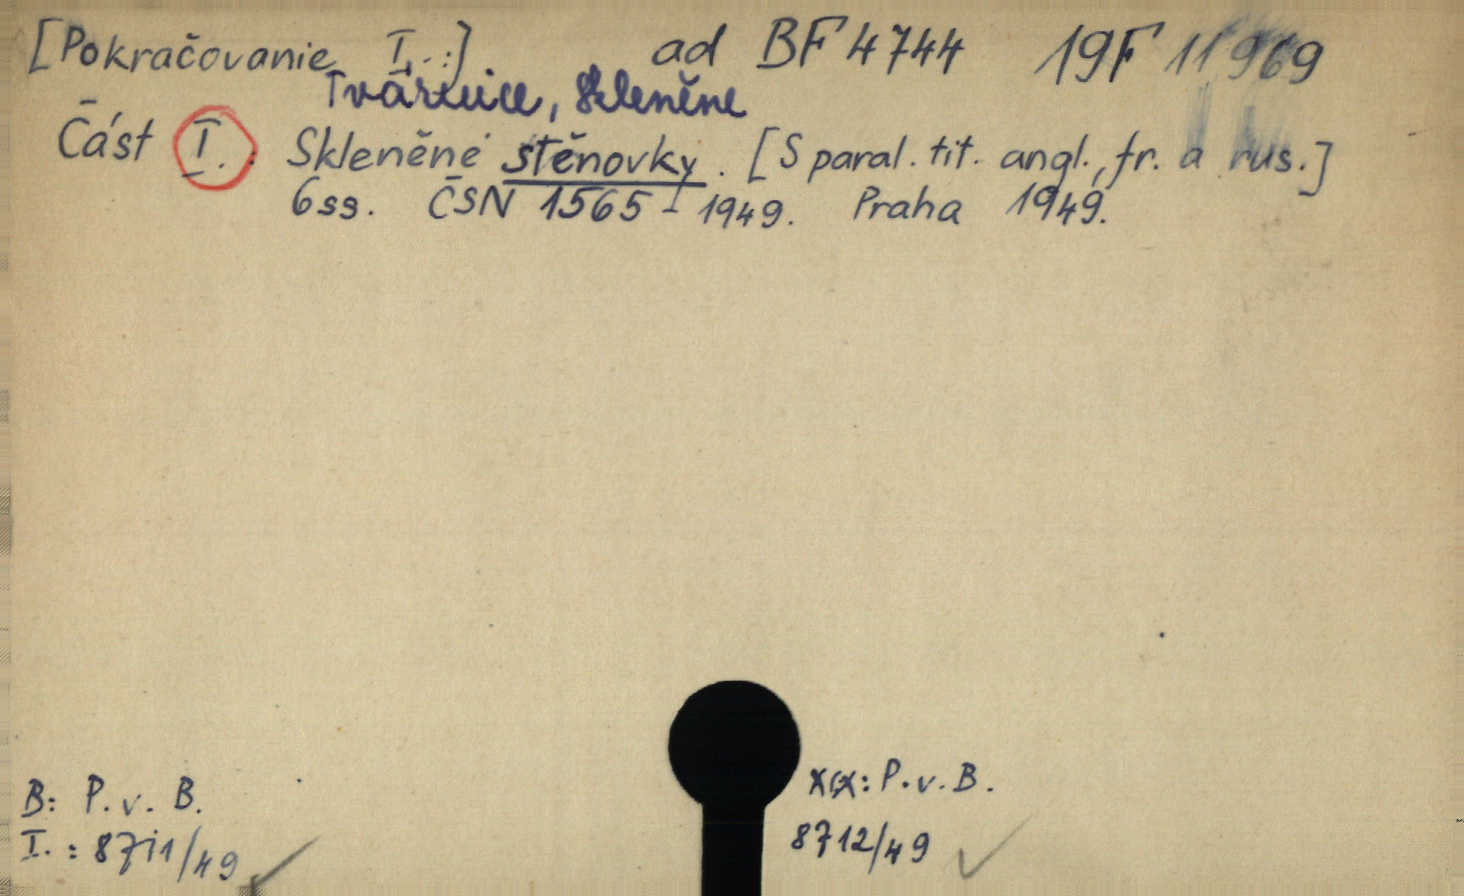 [Pokračovanie I.:] ad BF 4744 19F 11969
Tvárnice, skleněné
Část I.: Skleněné stěnovky. [S paral. tit. angl., fr. a rus.]
6 ss. ČSN 1565 - 1949. Praha 1949.
B: P. v. B.
I.: 8711/49
P. v. B.
8712/49